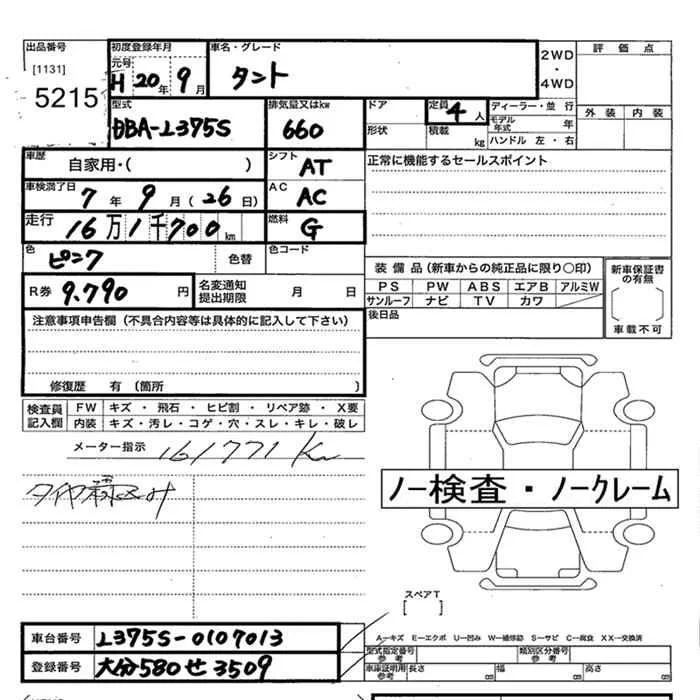 出品番号 初度登録年月 車名・グレード 2WD・4WD 評価点
[1131] 5215 元号 H 20年 9月 タント
外装 内装
型式 排気量又はkw ドア 定員 4人 ディーラー・並行
DBA-L375S 660 形状 積載 kg モデル年式 年
ハンドル 左・右
車歴 自家用・( ) シフト AT 正常に機能するセールスポイント
車検満了日 7年 9月 (26日) AC AC
走行 16万1千700km 燃料 G
色 ピンク 色替 色コード
装備品(新車からの純正品に限り○印) 新車保証書の有無
R券 9.790円 名変通知提出期限 月 日
PS PW ABS エアB アルミW
サンルーフ ナビ TV カワ
[ ] 車載不可
後日品
注意事項申告欄(不具合内容等は具体的に記入して下さい)
修復歴 有 〔箇所 〕
検査員記入欄 FW キズ・飛石・ヒビ割・リペア跡・X要
内装 キズ・汚レ・コゲ・穴・スレ・キレ・破レ
メーター指示 161771 Km
ノー検査・ノークレーム
スペアT
[ ]
A―キズ E―エクボ U―凹み W―補修跡 S―サビ C―腐食 XX―交換済
車台番号 L375S-0107013 型式指定番号 参考 類別区分番号 参考
登録番号 大分580せ3509 車庫証明用 参考 長さ 幅 高さ